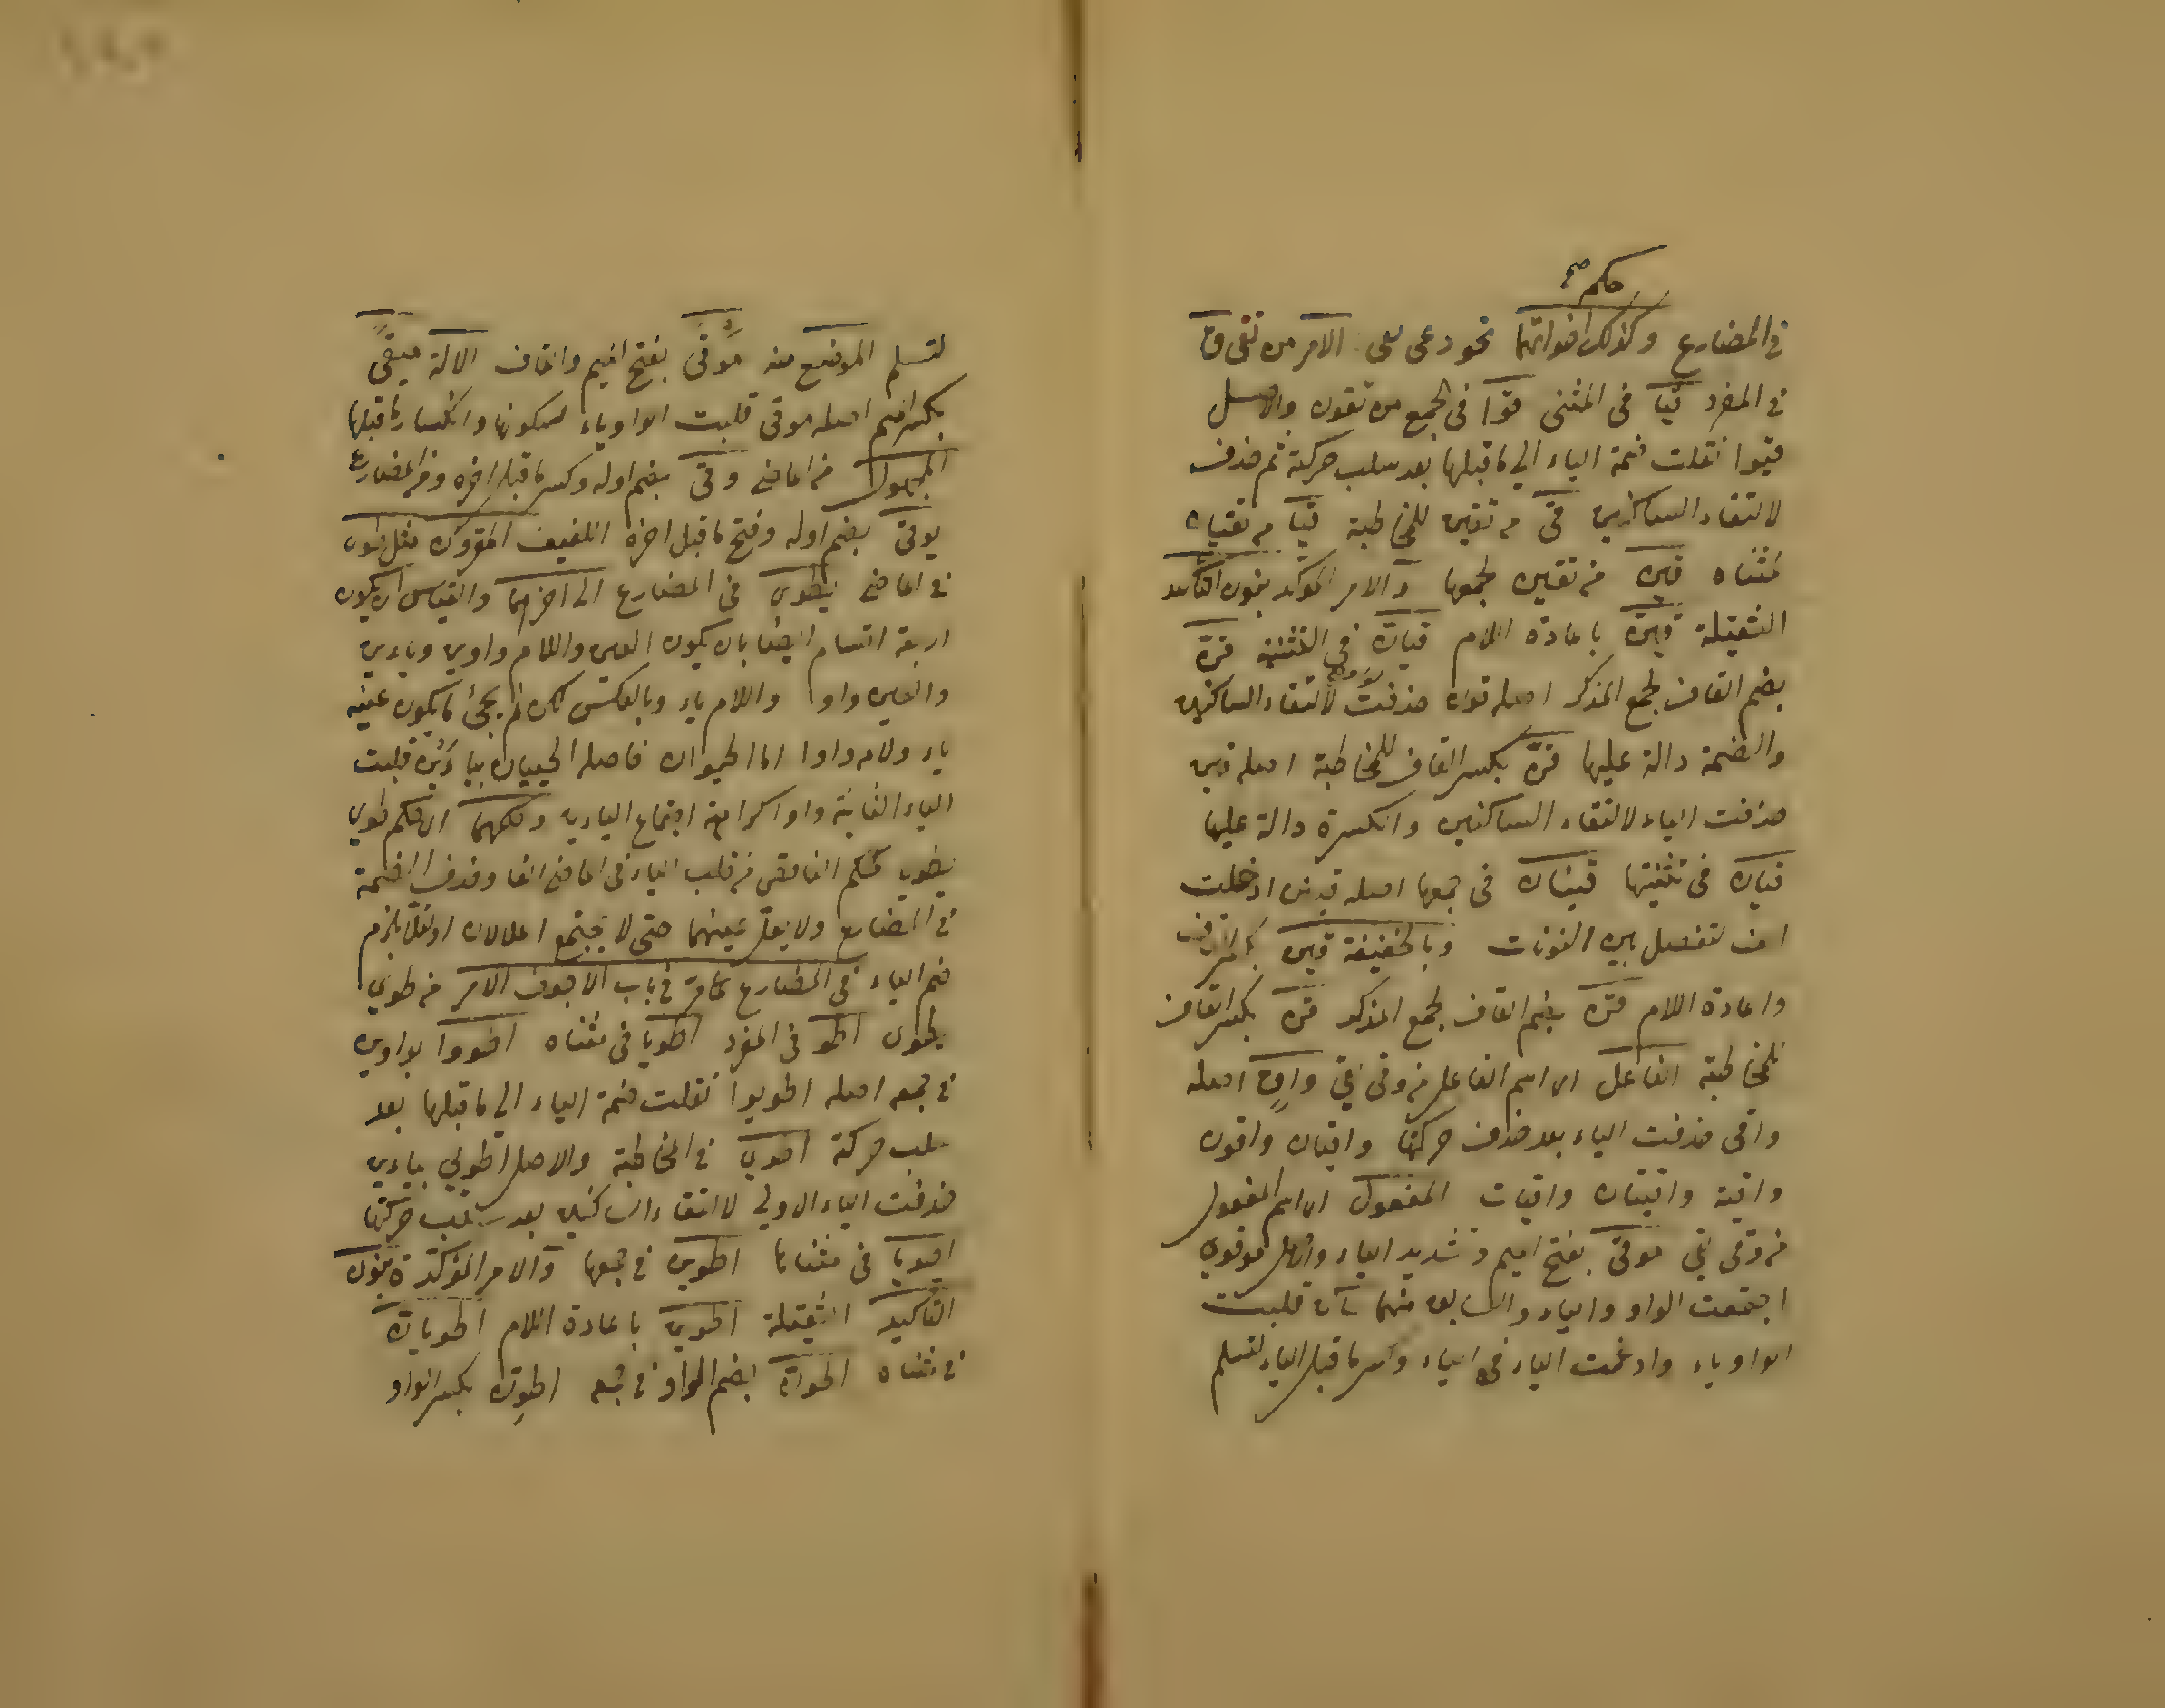 حكم صح
في المضارع وكذلك اخواتهما نحو وعى يعى الامر من تقى ق
في المفرد قيا فى المثنى قوا فى الجمع من تقون والاصل
قيوا نقلت ضمة الياء الي ما قبلها بعد سلب حركته ثم حذف
لالتقاء الساكنين قى من تقين للمخاطبة قيا من تقيان
مثناه قين من تقين لجمعها والامر المؤكد بنون التاكيد
الثقيلة قينّ باعادة اللام قيانّ في التثنية قنّ
بضم القاف لجمع المذكر اصله قون حذفت لالتقاء الساكنين
والضمة دالة عليها قنّ بكسر القاف للمخاطبة اصله قين
حذفت الياء لالتقاء الساكنين والكسرة دالة عليها
قيان فى تثنيتها قينان فى جمعها اصله قينن ادخلت
الف لتفصل بين النونات وبالخفيفة قين
واعادة اللام قن بضم القاف لجمع المذكر قن بكسر القاف
للمخاطبة الفاعل اى اسم الفاعل من وقى يقى واقٍ اصله
واقى حذفت الياء بعد حذف حركتها واقيان واقون
واقية واقيتان واقيات المفعول اى اسم المفعول
من وقى يقي موقىّ بفتح الميم وتشديد الياء واصل موقوي
اجتمعت الواو والياء والسابق منهما ساكن قلبت
الواو ياء وادغمت الياء فى الياء وكسر ما قبل الياء لتسلم
لتسلم الموضع منه موقىً بفتح الميم والقاف الالة ميقىً
بكسر الميم اصله موقى قلبت الواو ياء لسكونها وانكسار ما قبلها
المجهول من الماضي وقى بضم اوله وكسر ما قبل اخره ومن المضارع
يوقى بضم اوله وفتح ما قبل اخره اللفيف المقرون مثل طوى
في الماضي يطوى في المضارع الى اخرهما والقياس ان يكون
اربعة اقسام ايضا بان يكون العين واللام واوين ويائين
والعين واوا واللام ياء وبالعكس لكن لم يجئ ما يكون عينه
ياء ولامه واوا اما الحيوان فاصله الحييان بيائين قلبت
الياء الثانية واوا كراهة اجتماع اليائين وحكمهما اى حكم طوى
يطوى كحكم الناقص من قلب الياء في الماضي الفا وحذف الضمة
في المضارع ولا يعل عينهما حتى لا يجتمع اعلالان او لئلا يلزم
ضم الياء في المضارع كما مر في باب الاجوف الامر من طوى
يطوى اطو في المفرد اطويا فى مثناه اطووا بواوين
في جمعه اصله اطويوا نقلت ضمة الياء الي ما قبلها بعد
سلب حركة اطوي في المخاطبة والاصل اطويي بيائين
حذفت الياء الاولي لالتقاء الساكنين بعد سلب حركتها
اطويا فى مثناها اطوين في جمعها والامر المؤكد بنون
التاكيد الثقيلة اطوينّ باعادة اللام اطويانّ
في مثناه اطونّ بضم الواو في جمعه اطوِنّ بكسر الواو